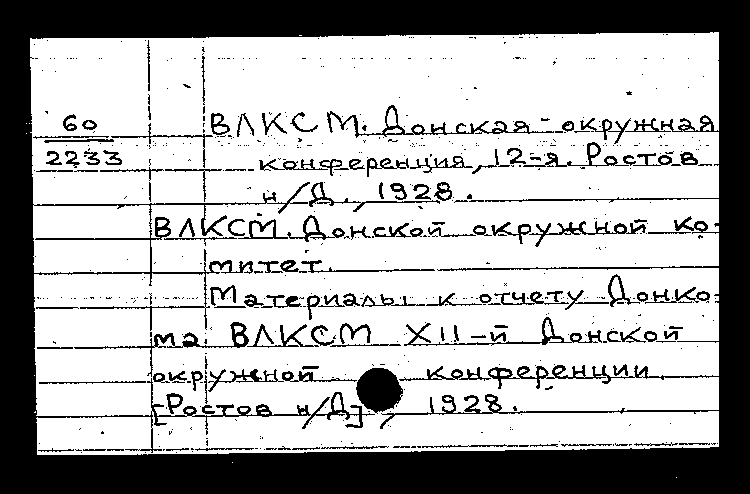 60
2233
ВЛКСМ. Донская окружная
конференция, 12-я. Ростов
н/Д., 1928.
ВЛКСМ. Донской окружной ко-
митет.
Материалы к отчету Донко-
ма ВЛКСМ XII-й Донской
окружной конференции.
[Ростов н/Д], 1928.